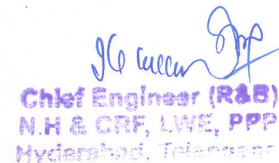 Chief Engineer (R&B)
N.H & CRF, LWE, PPP
Hyderabad, Telangana